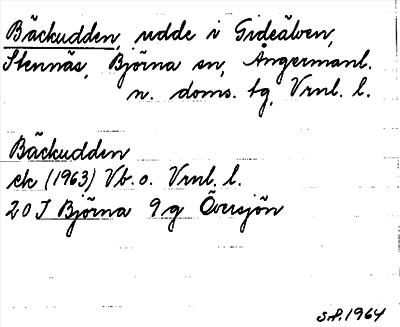 Bäckudden, udde i Gideälven,
Stennäs, Björna sn, Ångermanl.
n. doms. tg, Vrnl. l.
Bäckudden
ek (1963) Vb. o. Vrnl. l.
20 J Björna 9 g Översjön
S.P. 1964